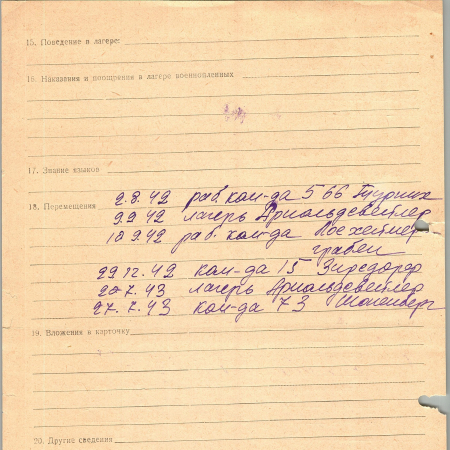 15. Поведение в лагере:
16. Наказания и поощрения в лагере военнопленных
17. Знание языков
18. Перемещения 2.8.42 раб. ком-да 566 Гцурших
9.9.42 лагерь Арнольдсвейлер
10.9.42 раб. ком-да
грабен
29.12.42 ком-да 15 Зирсдорф
20.7.43 лагерь Арнольдсвейлер
27.7.43 ком-да 73 Шоненберг
19. Вложения в карточку
20. Другие сведения